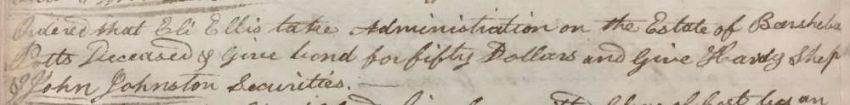 Ordered that Eli Ellis take Administration on the Estate of Barsheba
Potts Deceased & Give bond for fifty Dollars and Give Hardy Shep
& John Johnston Securities.